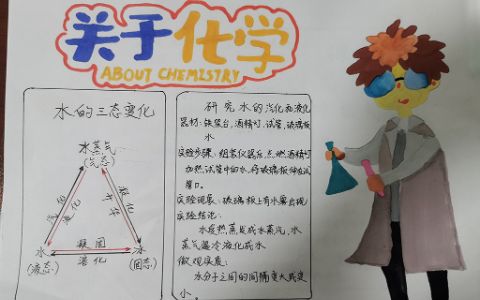 关于化学
ABOUT CHEMISTRY
水的三态变化
水蒸气
(气态)
汽化
液化
凝华
升华
水
凝固
水
(液态)
溶化
(固态)
研究水的汽化和液化
器材:铁架台,酒精灯,试管,玻璃板
水
实验步骤:组装仪器后,点燃酒精灯
加热试管中的水,将玻璃板伸在试
管口。
实验现象:玻璃板上有水雾出现
实验结论:
水受热蒸发成水蒸汽,水
蒸气遇冷液化成水
微观实质:
水分子之间的间隔变大或变
小。